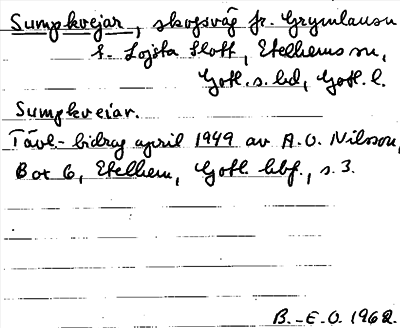 Sumpkvejar, skogsväg fr. Grymlausu
t. Lojsta slott, Etelhems sn,
Gotl. s. hd, Gotl. l.
Sumpkveiar.
Tävl.-bidrag april 1949 av A.O. Nilsson,
Box 6, Etelhem, Gotl. hbf., s. 3.
B.-E.O. 1962.